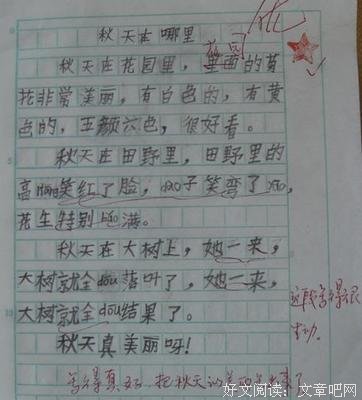 秋天在哪里
秋天在花园里，里面的菊
花非常美丽，有白色的，有黄
色的，五颜六色，很好看。
秋天在田野里，田野里的
高liang笑红了脸，dao子笑弯了yao，
花生特别bǎo满。
秋天在大树上，她一来，
大树就全dou落叶了，她一来，
大树就全dou结果了。
秋天真美丽呀！
这段写得很
生动。
写得真好，把秋天的美
好文阅读：文章吧网